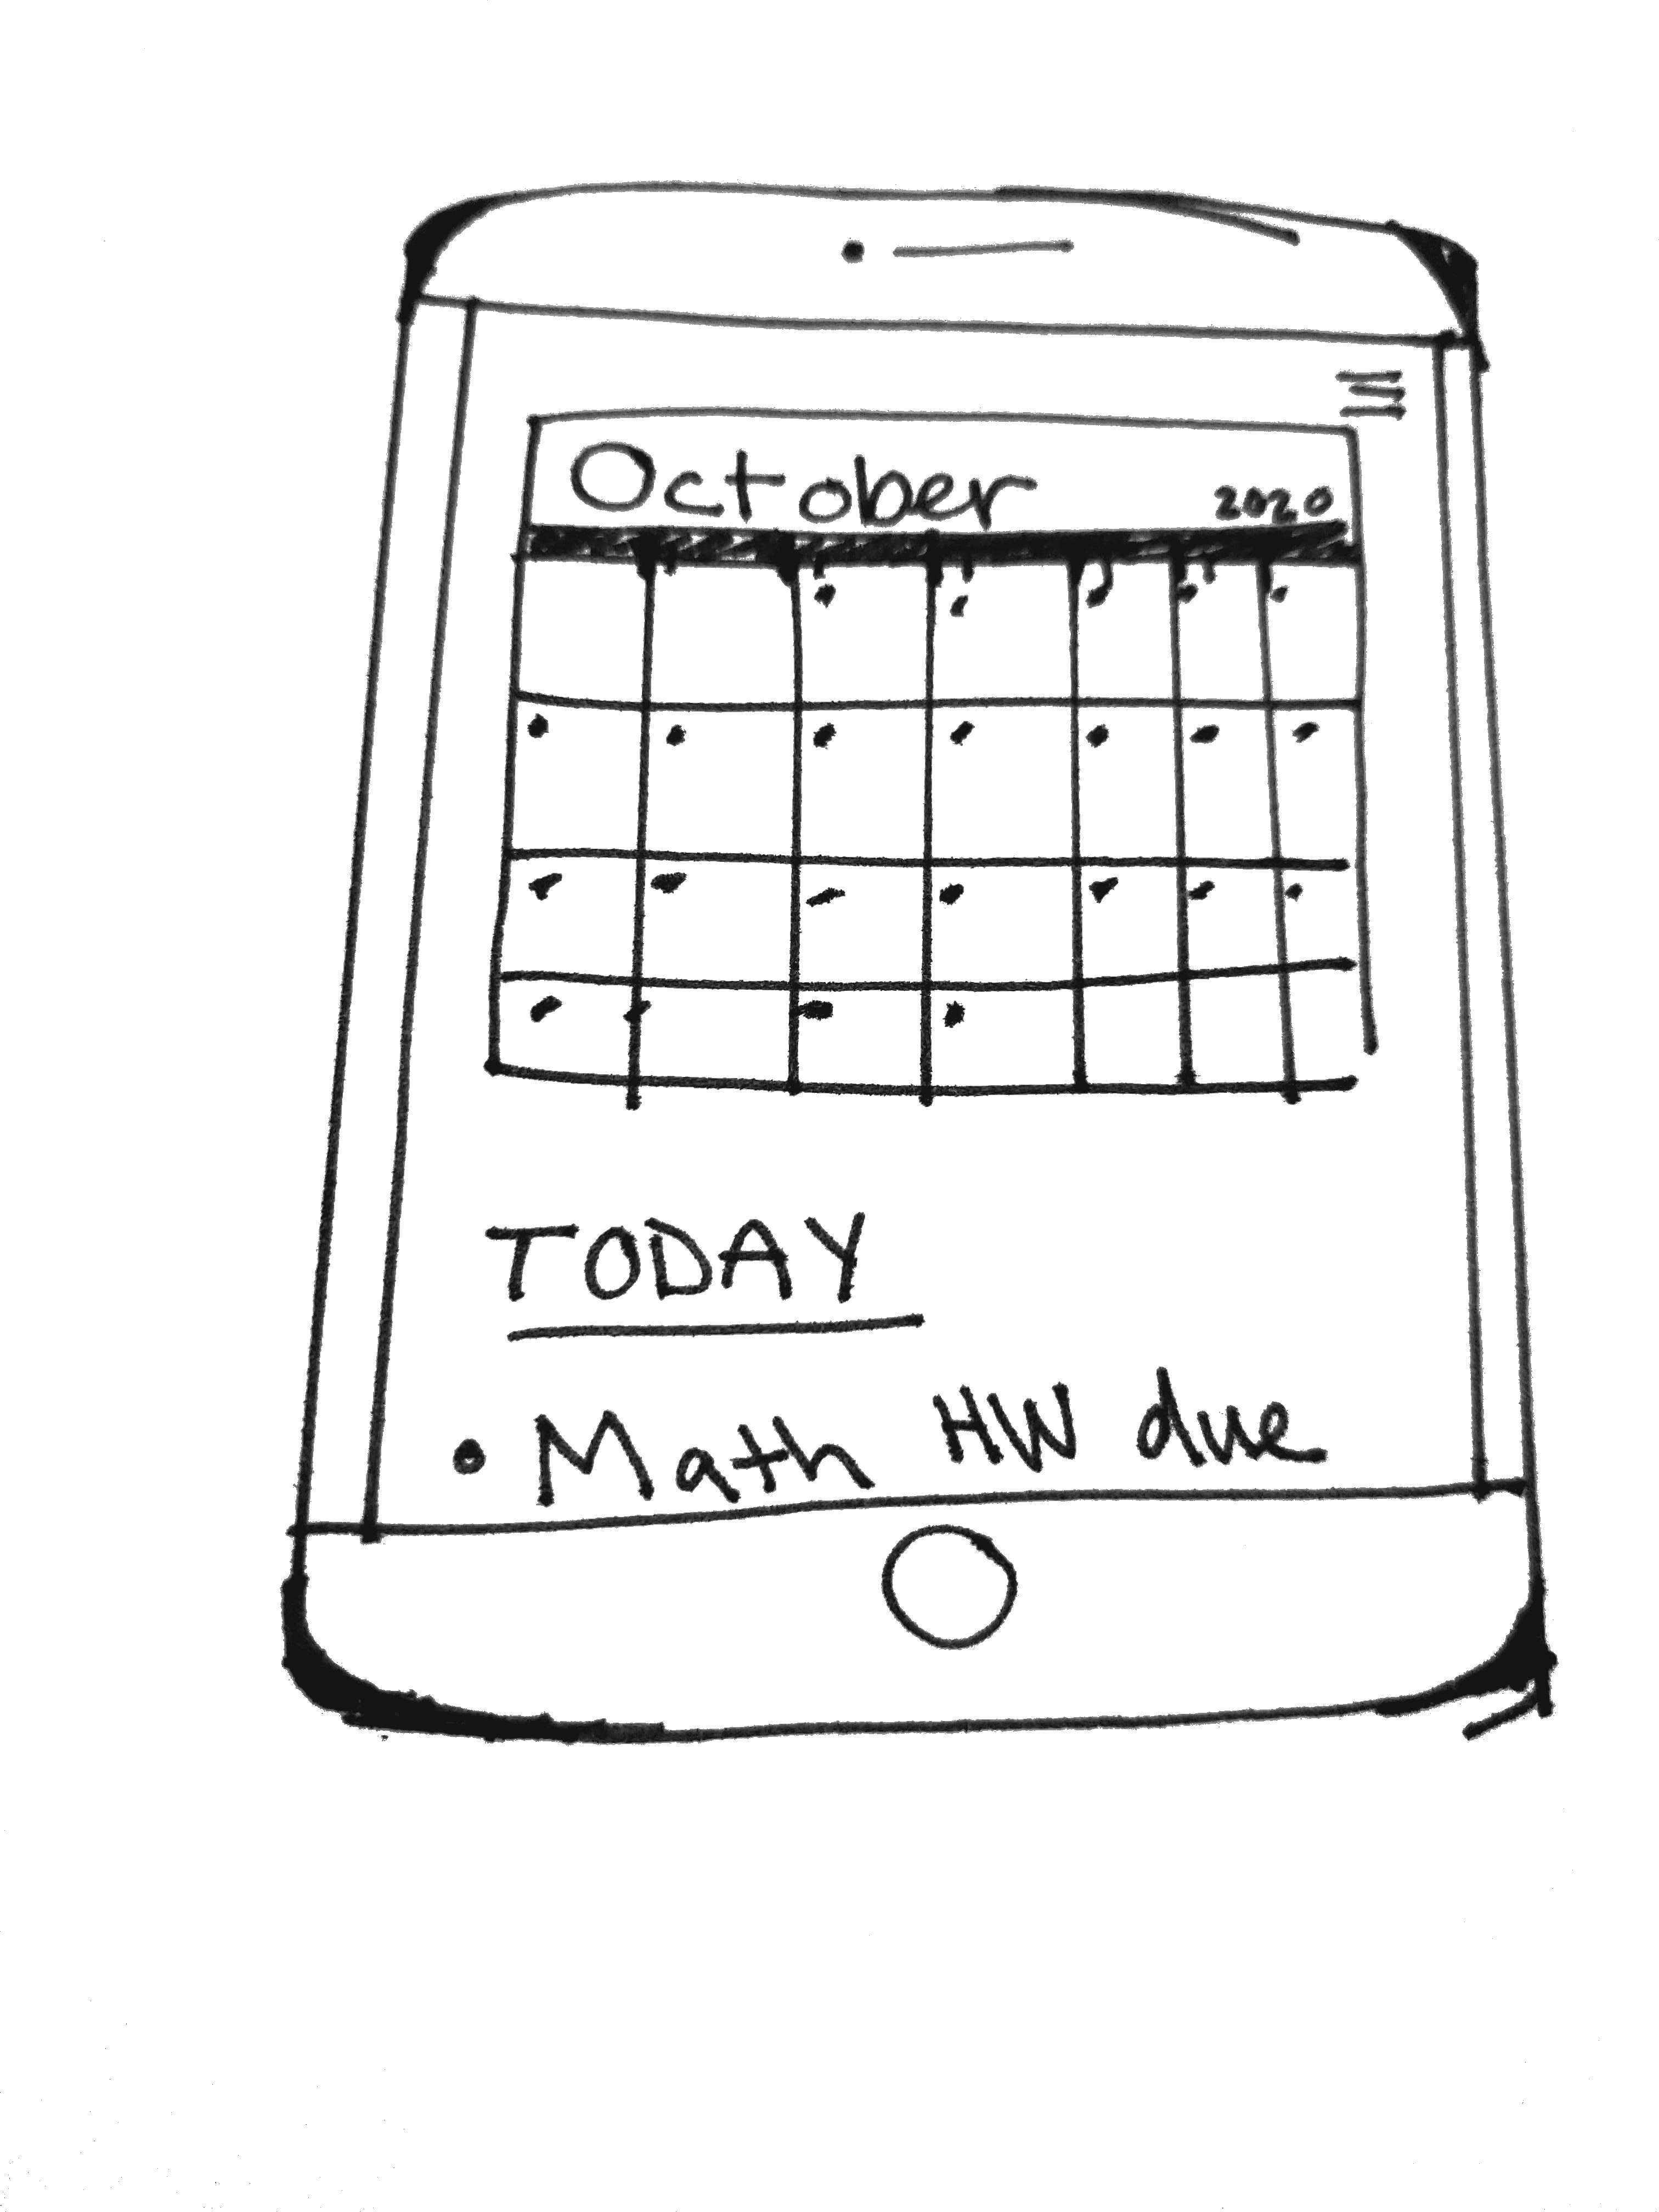 October 2020
TODAY
• Math HW due